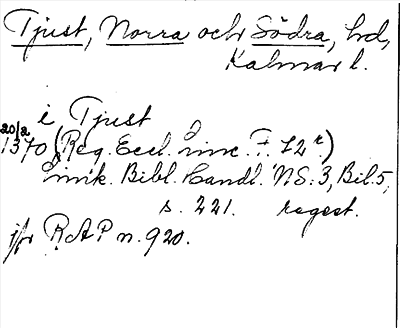 Tjust, Norra och Södra, hd,
Kalmar l.
i Tjust
20/2
1370 (Reg. Eccl. Linc. F. 12r.)
Link. Bibl. Handl. NS:3, Bil. 5,
s. 221. regest.
jfr RAP n. 920.